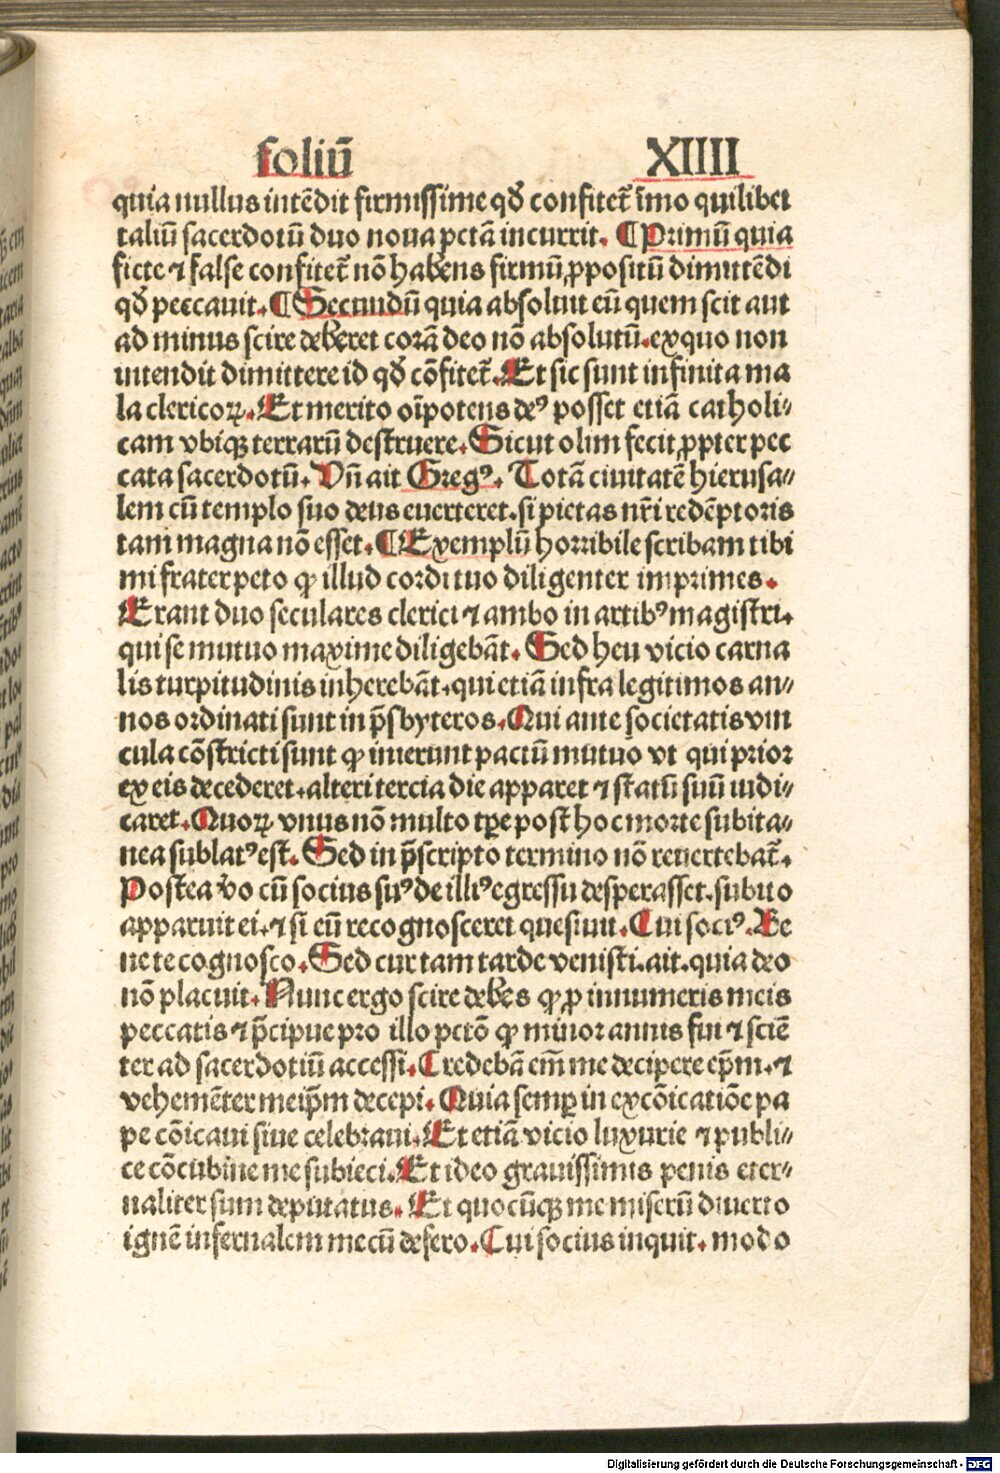 foliū XIIII
quia nullus intēdit firmissime qđ confitet᷑ īmo quilibet
taliū sacerdotū duo noua pctā incurrit. ¶ Primū quia
ficte ⁊ false confitet᷑ nō habens firmū ꝓpositū dimittēdi
qđ peccauit. ¶ Secundū quia absoluit eū quem scit aut
ad minus scire deberet corā deo nō absolutū. exquo non
intendit dimittere id qđ cōfitet᷑. Et sic sunt infinita ma
la clericoꝝ. Et merito oīpotens deꝰ posset etiā catholi⸗
cam vbiqꝫ terrarū destruere. Sicut olim fecit ꝓpter pec
cata sacerdotū. Vn̄ ait Gregꝰ. Totā ciuitatē hierusa⸗
lem cū templo suo deus euerteret. si pietas nr̄i redēptoris
tam magna nō esset. ¶ Exemplū horribile scribam tibi
mi frater peto ꝙ illud cordi tuo diligenter imprimes.
Erant duo seculares clerici ⁊ ambo in artibꝰ magistri.
qui se mutuo maxime diligebāt. Sed heu vicio carna
lis turpitudinis inherebāt. qui etiā infra legitimos an⸗
nos ordinati sunt in p̄sbyteros. Qui ante societatis vin
cula cōstricti sunt ꝙ inierunt pactū mutuo vt qui prior
ex eis decederet. alteri tercia die apparet ⁊ statū suū iudi⸗
caret. Quoꝝ vnus nō multo tꝑe post hoc morte subita⸗
nea sublatꝰ est. Sed in p̄scripto termino nō reuertebat᷑.
Postea v̄o cū socius suꝰ de illiꝰ egressu desperasset. subito
apparuit ei. ⁊ si eū recognosceret quesiuit. Cui sociꝰ. Be
ne te cognosco. Sed cur tam tarde venisti. ait. quia deo
nō placuit. Nunc ergo scire debes ꝙ ꝓ innumeris meis
peccatis ⁊ p̄cipue pro illo pctō ꝙ minor annis fui ⁊ sciē
ter ad sacerdotiū accessi. Credebā em̄ me decipere ep̄m. ⁊
vehemēter meip̄m decepi. Quia semꝑ in excōicatiōe pa
pe cōicaui siue celebraui. Et etiā vicio luxurie ⁊ publi⸗
ce cōcubine me subieci. Et ideo grauissimis penis eter⸗
naliter sum deputatus. Et quocūqꝫ me miserū diuerto
ignē infernalem mecū defero. Cui socius inquit. modo
Digitalisierung gefördert durch die Deutsche Forschungsgemeinschaft - DFG